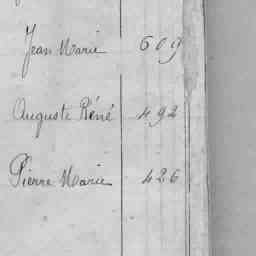 Jean Marie 609
Auguste Réné 492
Pierre Marie 426